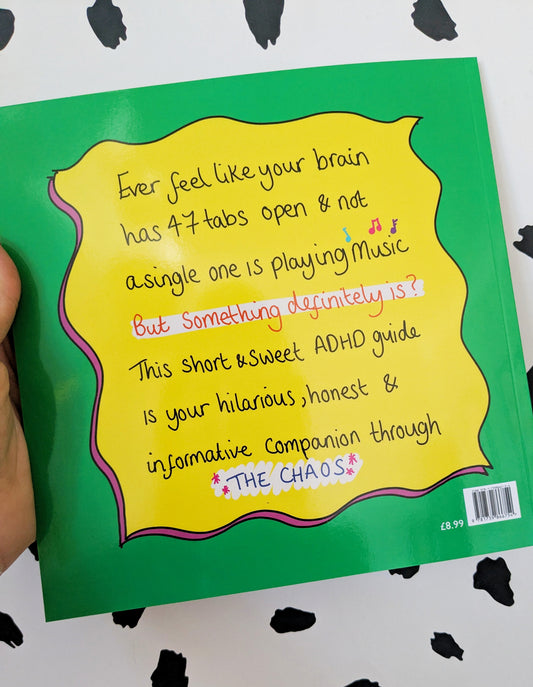 Ever feel like your brain
has 47 tabs open & not
a single one is playing Music
But Something definitely is?
This short & sweet ADHD guide
is your hilarious, honest &
informative companion through
THE CHAOS
£8.99